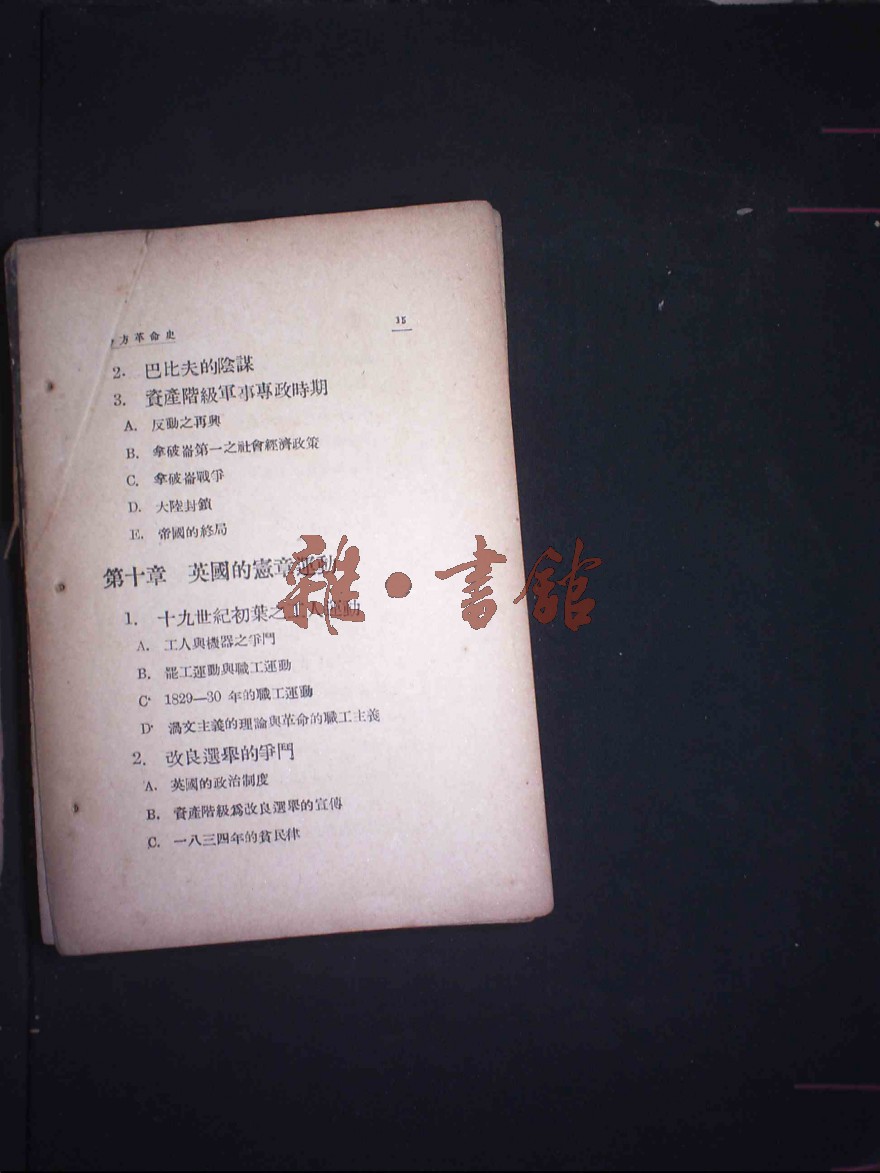 方革命史
15
2. 巴比夫的陰謀
3. 資產階級軍事專政時期
A. 反動之再興
B. 拿破崙第一之社會經濟政策
C. 拿破崙戰爭
D. 大陸封鎖
E. 帝國的終局
第十章 英國的憲章運動
雜·書館
1. 十九世紀初葉之工人運動
A. 工人與機器之爭鬥
B. 罷工運動與職工運動
C. 1829—30 年的職工運動
D. 渦文主義的理論與革命的職工主義
2. 改良選舉的爭鬥
A. 英國的政治制度
B. 資產階級爲改良選舉的宣傳
C. 一八三四年的貧民律